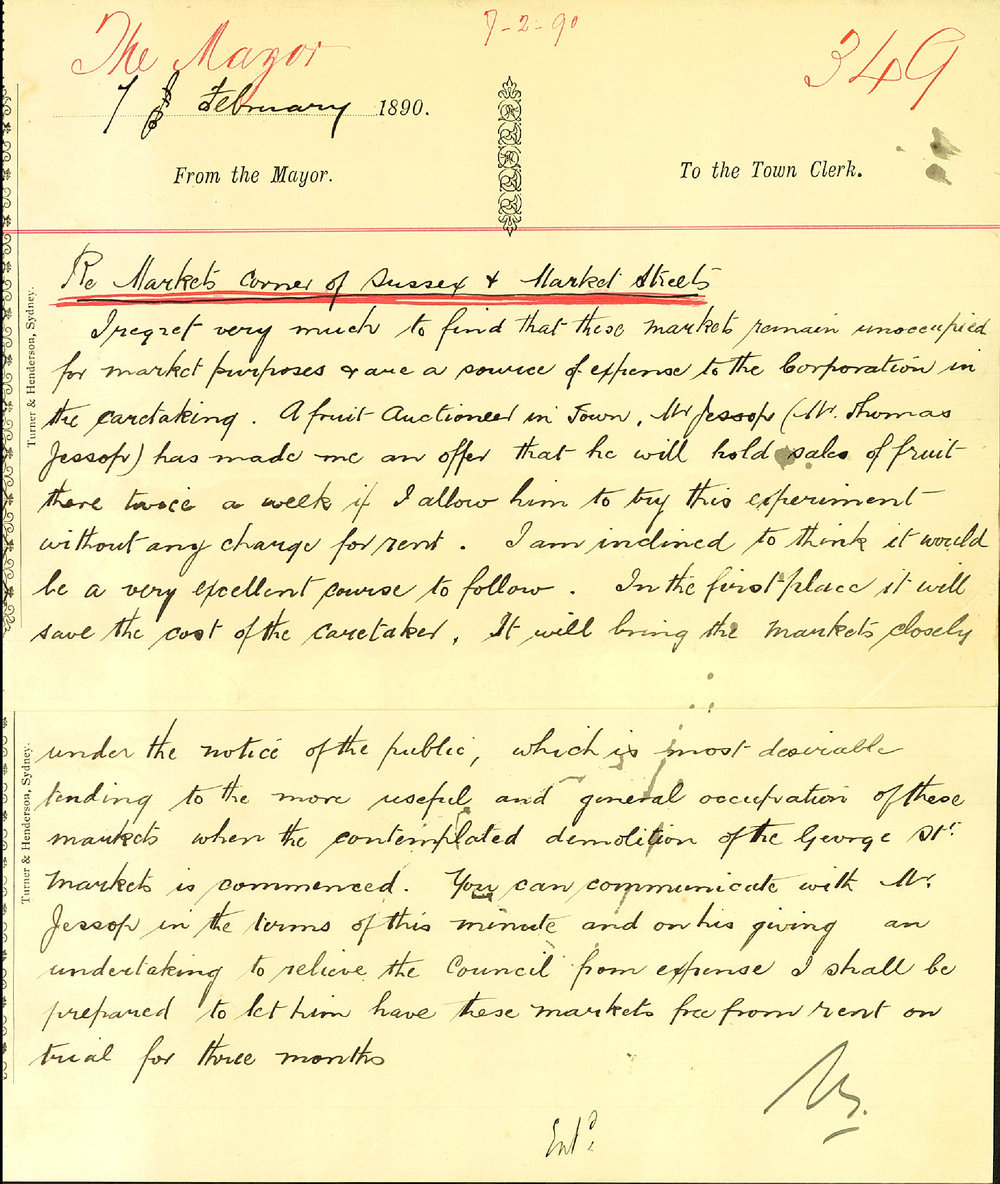 7-2-90
The Mayor
349
7 February 1890.
From the Mayor.
To the Town Clerk.
Re Markets corner of Sussex & Market Streets
I regret very much to find that these markets remain unoccupied
for market purposes & are a source of expense to the Corporation in
the caretaking. A fruit Auctioneer in Town, Mr Jessop (Mr. Thomas
Jessop) has made me an offer that he will hold sales of fruit
there twice a week if I allow him to try this experiment
without any charge for rent. I am inclined to think it would
be a very excellent course to follow. In the first place it will
save the cost of the caretaker. It will bring the markets closely
Turner & Henderson, Sydney.
under the notice of the public, which is most desirable
tending to the more useful and general occupation of these
markets when the contemplated demolition of the George St.
Markets is commenced. You can communicate with Mr.
Jessop in the terms of this minute and on his giving an
undertaking to relieve the Council from expense I shall be
prepared to let him have these markets free from rent on
trial for three months
Turner & Henderson, Sydney.
Entd.